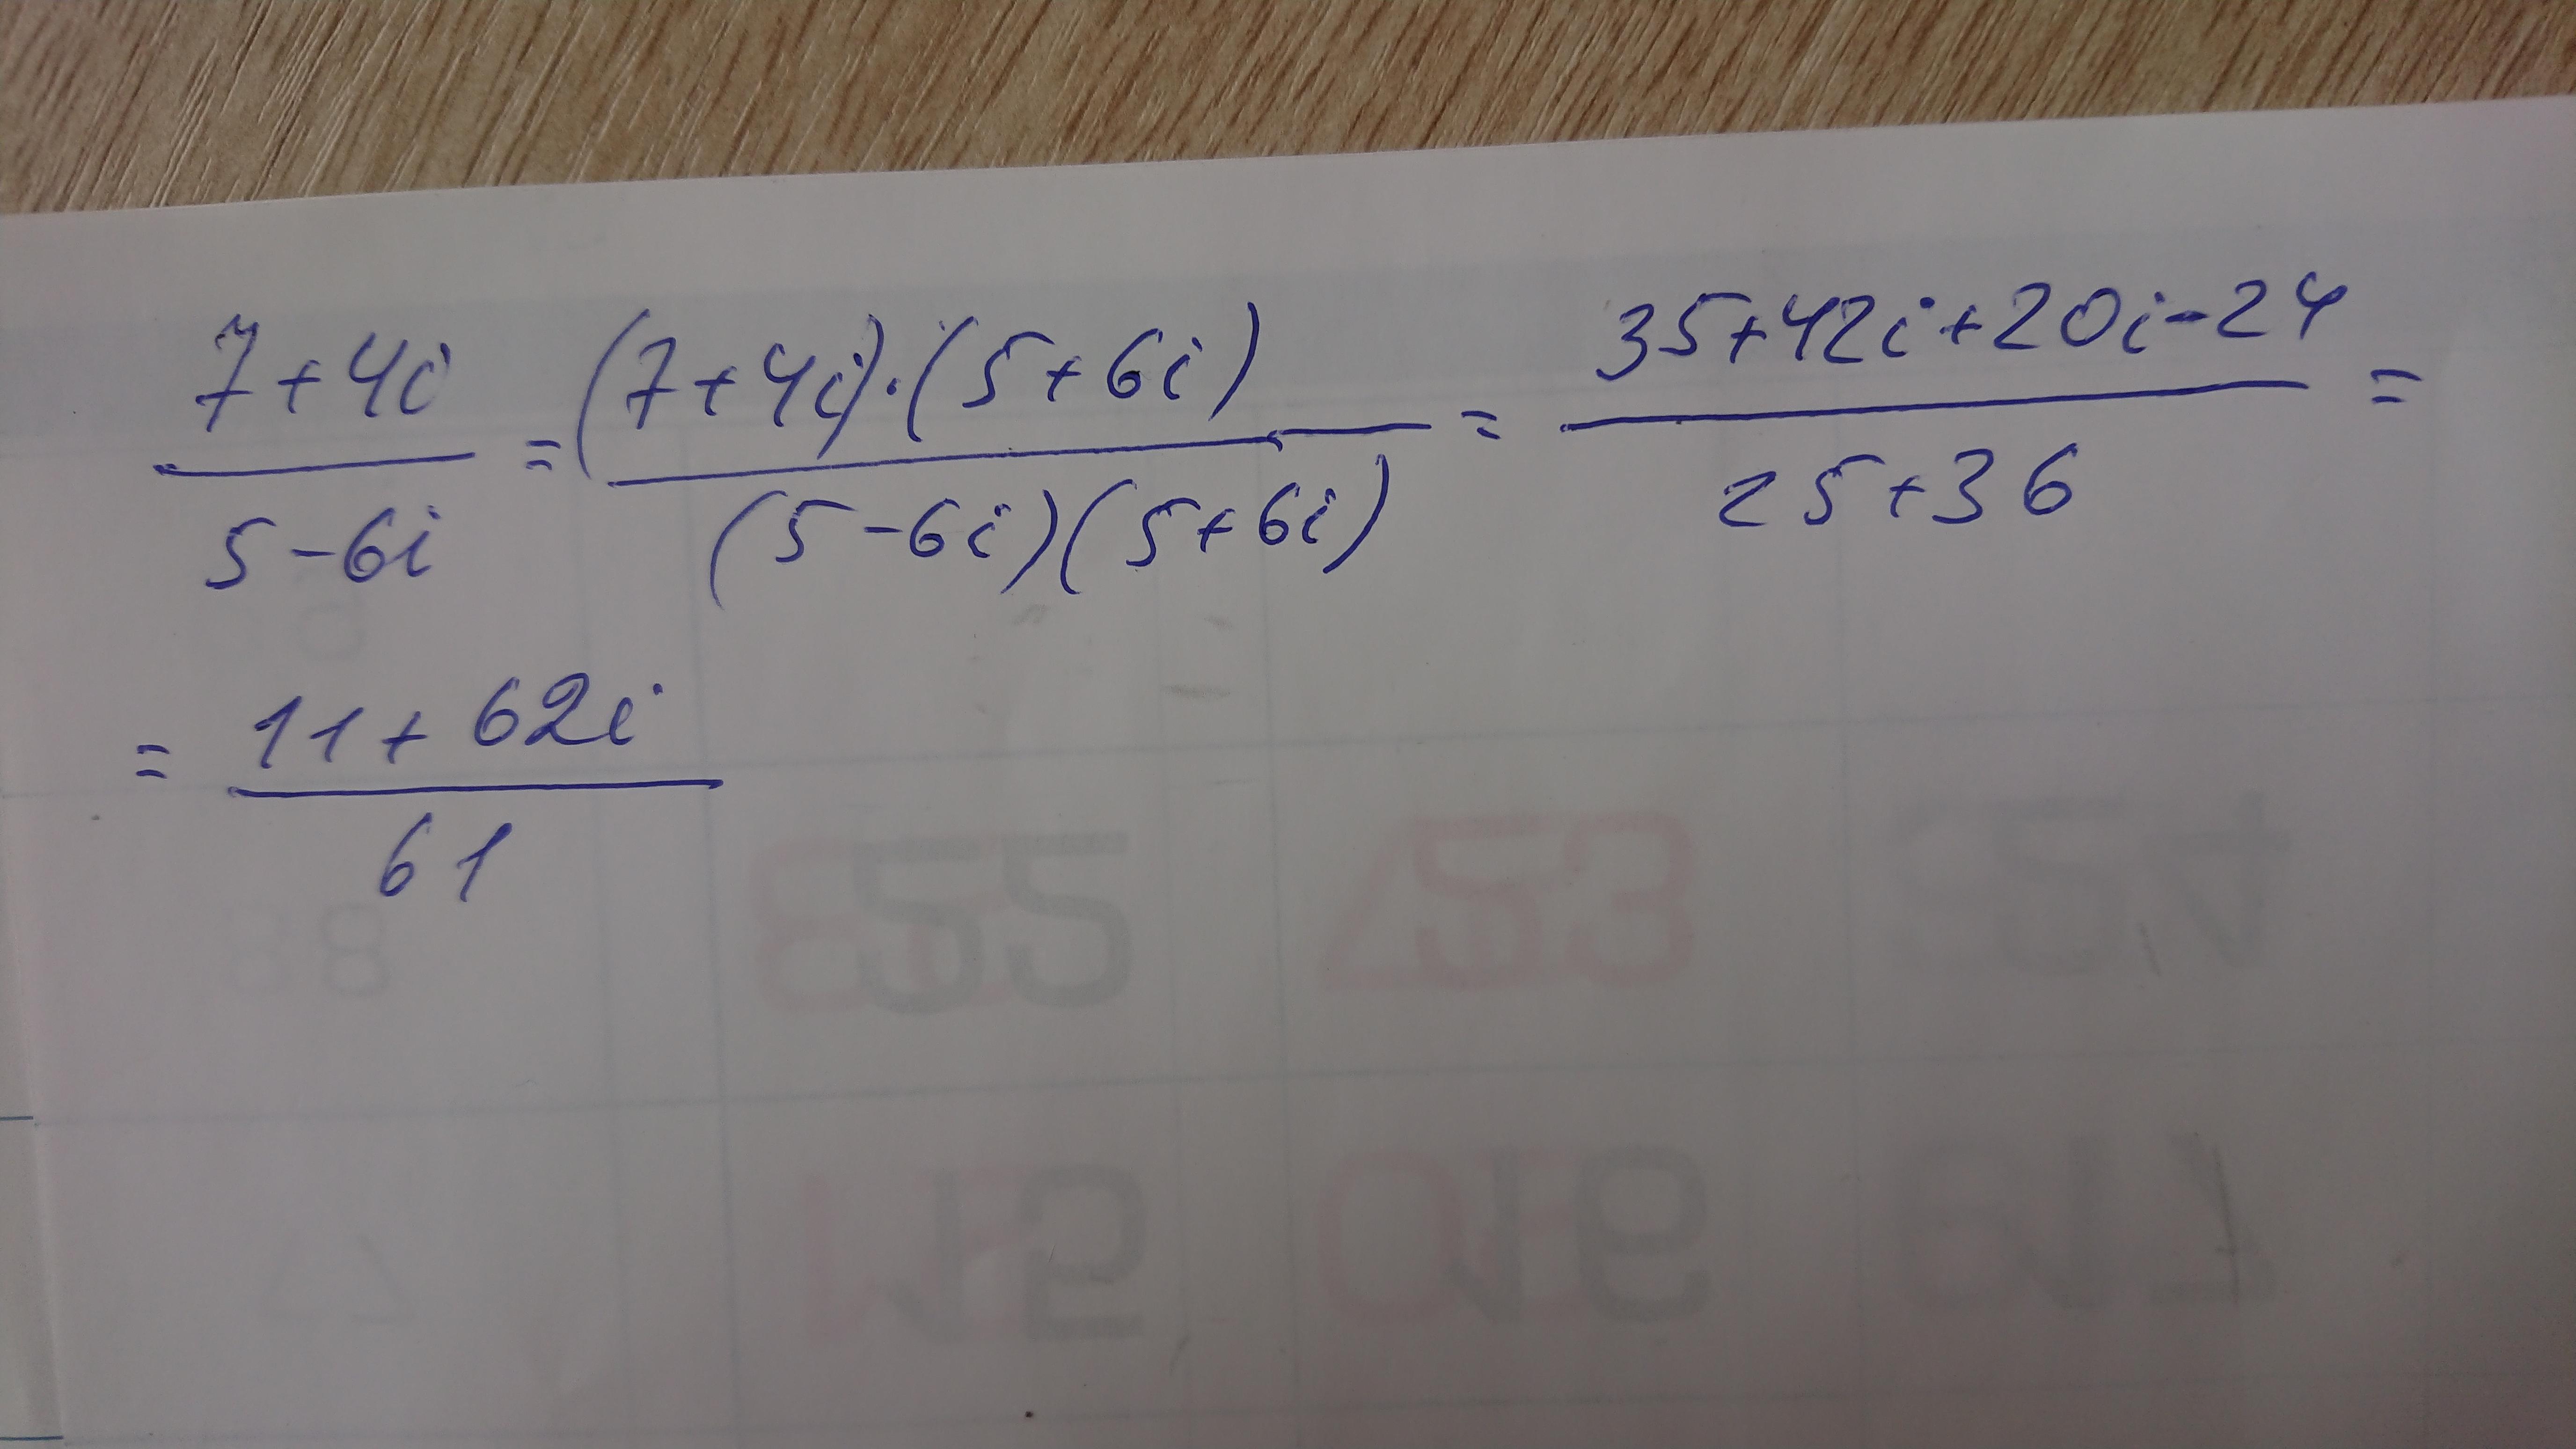 7+4i / 5-6i = (7+4i)·(5+6i) / (5-6i)(5+6i) = 35+42i+20i-24 / 25+36 =
= 11+62i / 61